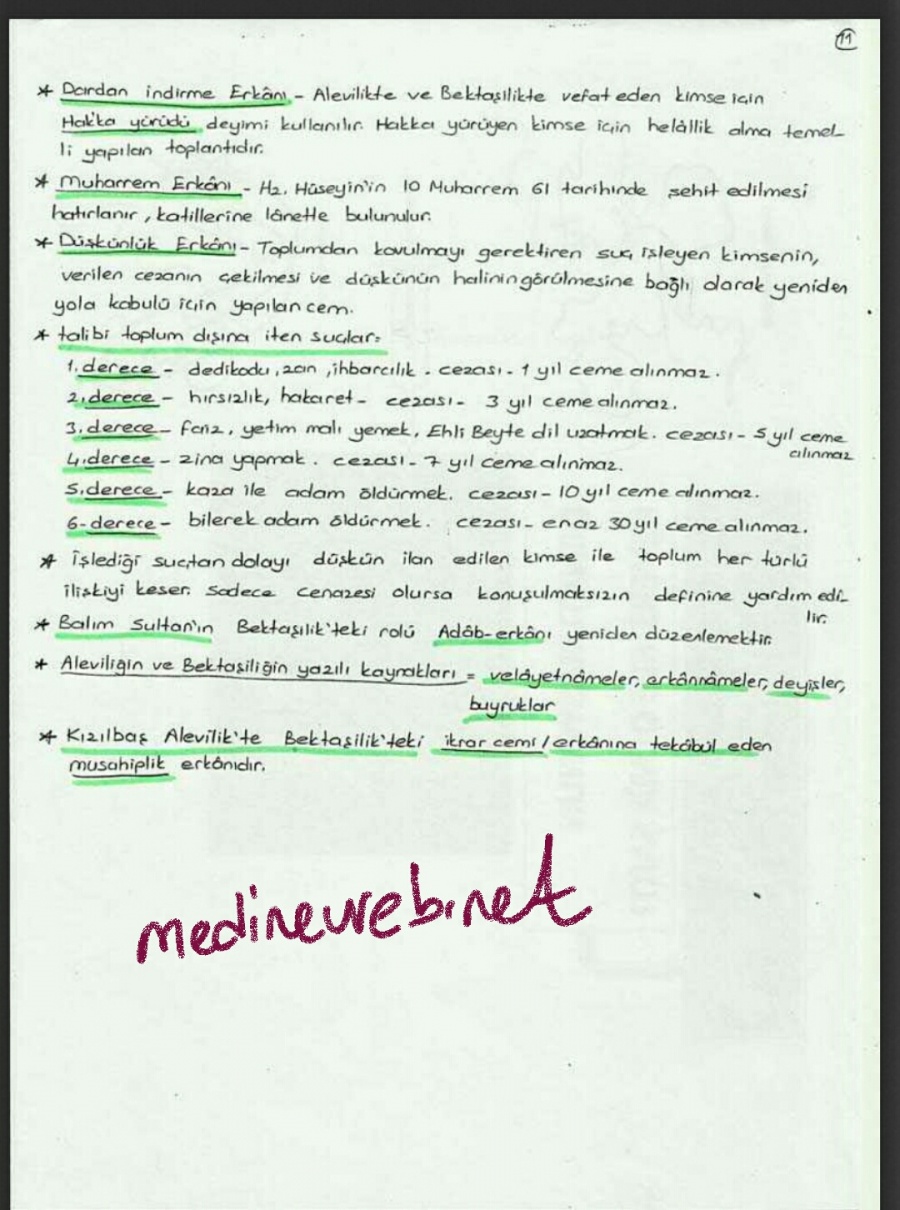 11
* Dardan indirme Erkânı - Alevilikte ve Bektaşilikte vefat eden kimse için
Hakka yürüdü deyimi kullanılır. Hakka yürüyen kimse için helâllik alma temel
li yapılan toplantıdır.
* Muharrem Erkânı - Hz. Hüseyin'in 10 Muharrem 61 tarihinde şehit edilmesi
hatırlanır, katillerine lânette bulunulur.
* Düşkünlük Erkânı - Toplumdan kovulmayı gerektiren suç işleyen kimsenin,
verilen cezanın çekilmesi ve düşkünün halinin görülmesine bağlı olarak yeniden
yola kabulü için yapılan cem.
* talibi toplum dışına iten suçlar=
1. derece - dedikodu, zan, ihbarcılık. cezası - 1 yıl ceme alınmaz.
2. derece - hırsızlık, hakaret - cezası - 3 yıl ceme alınmaz.
3. derece - faiz, yetim malı yemek, Ehli Beyte dil uzatmak. cezası - 5 yıl ceme
alınmaz
4. derece - zina yapmak. cezası - 7 yıl ceme alınmaz.
5. derece - kaza ile adam öldürmek. cezası - 10 yıl ceme alınmaz.
6- derece - bilerek adam öldürmek. cezası - en az 30 yıl ceme alınmaz.
* İşlediği suçtan dolayı düşkün ilan edilen kimse ile toplum her türlü
ilişkiyi keser. Sadece cenazesi olursa konuşulmaksızın definine yardım edi-
lir.
* Balım Sultan'ın Bektaşilik'teki rolü Adâb-erkânı yeniden düzenlemektir.
* Aleviliğin ve Bektaşiliğin yazılı kaynakları = velâyetnâmeler, erkânnâmeler, deyişler,
buyruklar
* Kızılbaş Alevilik'te Bektaşilik'teki ikrar cemi / erkânına tekâbül eden
musahiplik erkânıdır.
medineweb.net